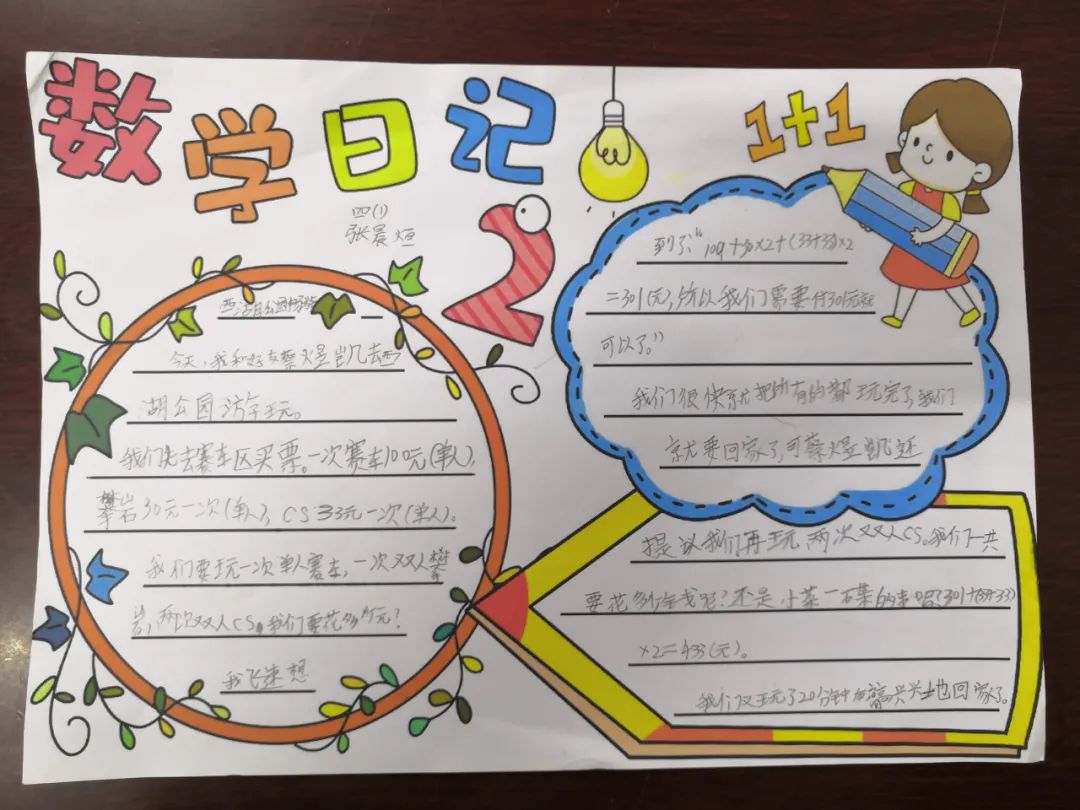 数学日记
1+1
四(1)
张晨烜
西湖公园
今天,我和好友蔡煜凯去西
湖公园游玩。
我们先去赛车区买票。一次赛车100元(单人),
攀岩30元一次(单人),CS33元一次(单人)。
我们要玩一次单人赛车,一次双人攀
岩,两次双人CS。我们要花多少元?
我飞速想
到了:“109+30×2+(33+33)×2
=301(元),所以我们需要付301元就
可以了。”
我们很快就把所有的都玩完了,我们
就要回家了,可蔡煜凯还
提议我们再玩两次双人CS。我们一共
要花多少钱呢?还是小菜一碟的事吧!301+(33+33)
×2=433(元)。
我们又玩了20分钟高兴兴地回家了。